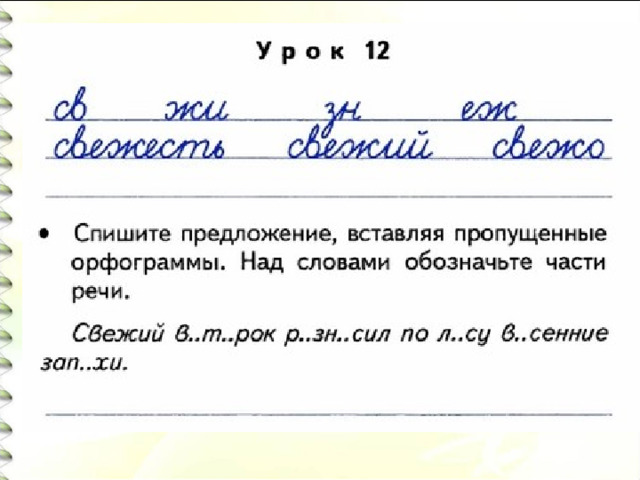 Урок 12
св жи зн еж
свежесть свежий свежо
• Спишите предложение, вставляя пропущенные
орфограммы. Над словами обозначьте части
речи.
Свежий в..т..рок р..зн..сил по л..су в..сенние
зап..хи.